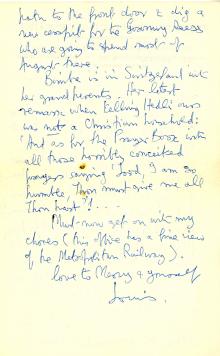 path to the front door & dig a
new cesspit for the Governing Bodies
who are going to spend most of
August there.
Bimba is in Switzerland with
her grandparents. Her latest
remark when telling Hedli ours
was not a Christian household:
'And as for the Prayer Book with
all those horribly conceited
prayers saying "Lord, I am so
humble, Thou must give me all
Thou hast"!...
Must now get on with my
chores (this office has a fine view
of the Metropolitan Railway).
love to Mercy & yourself
Louis.